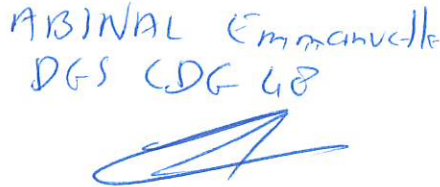 ABINAL Emmanuelle
DGS CDG 48